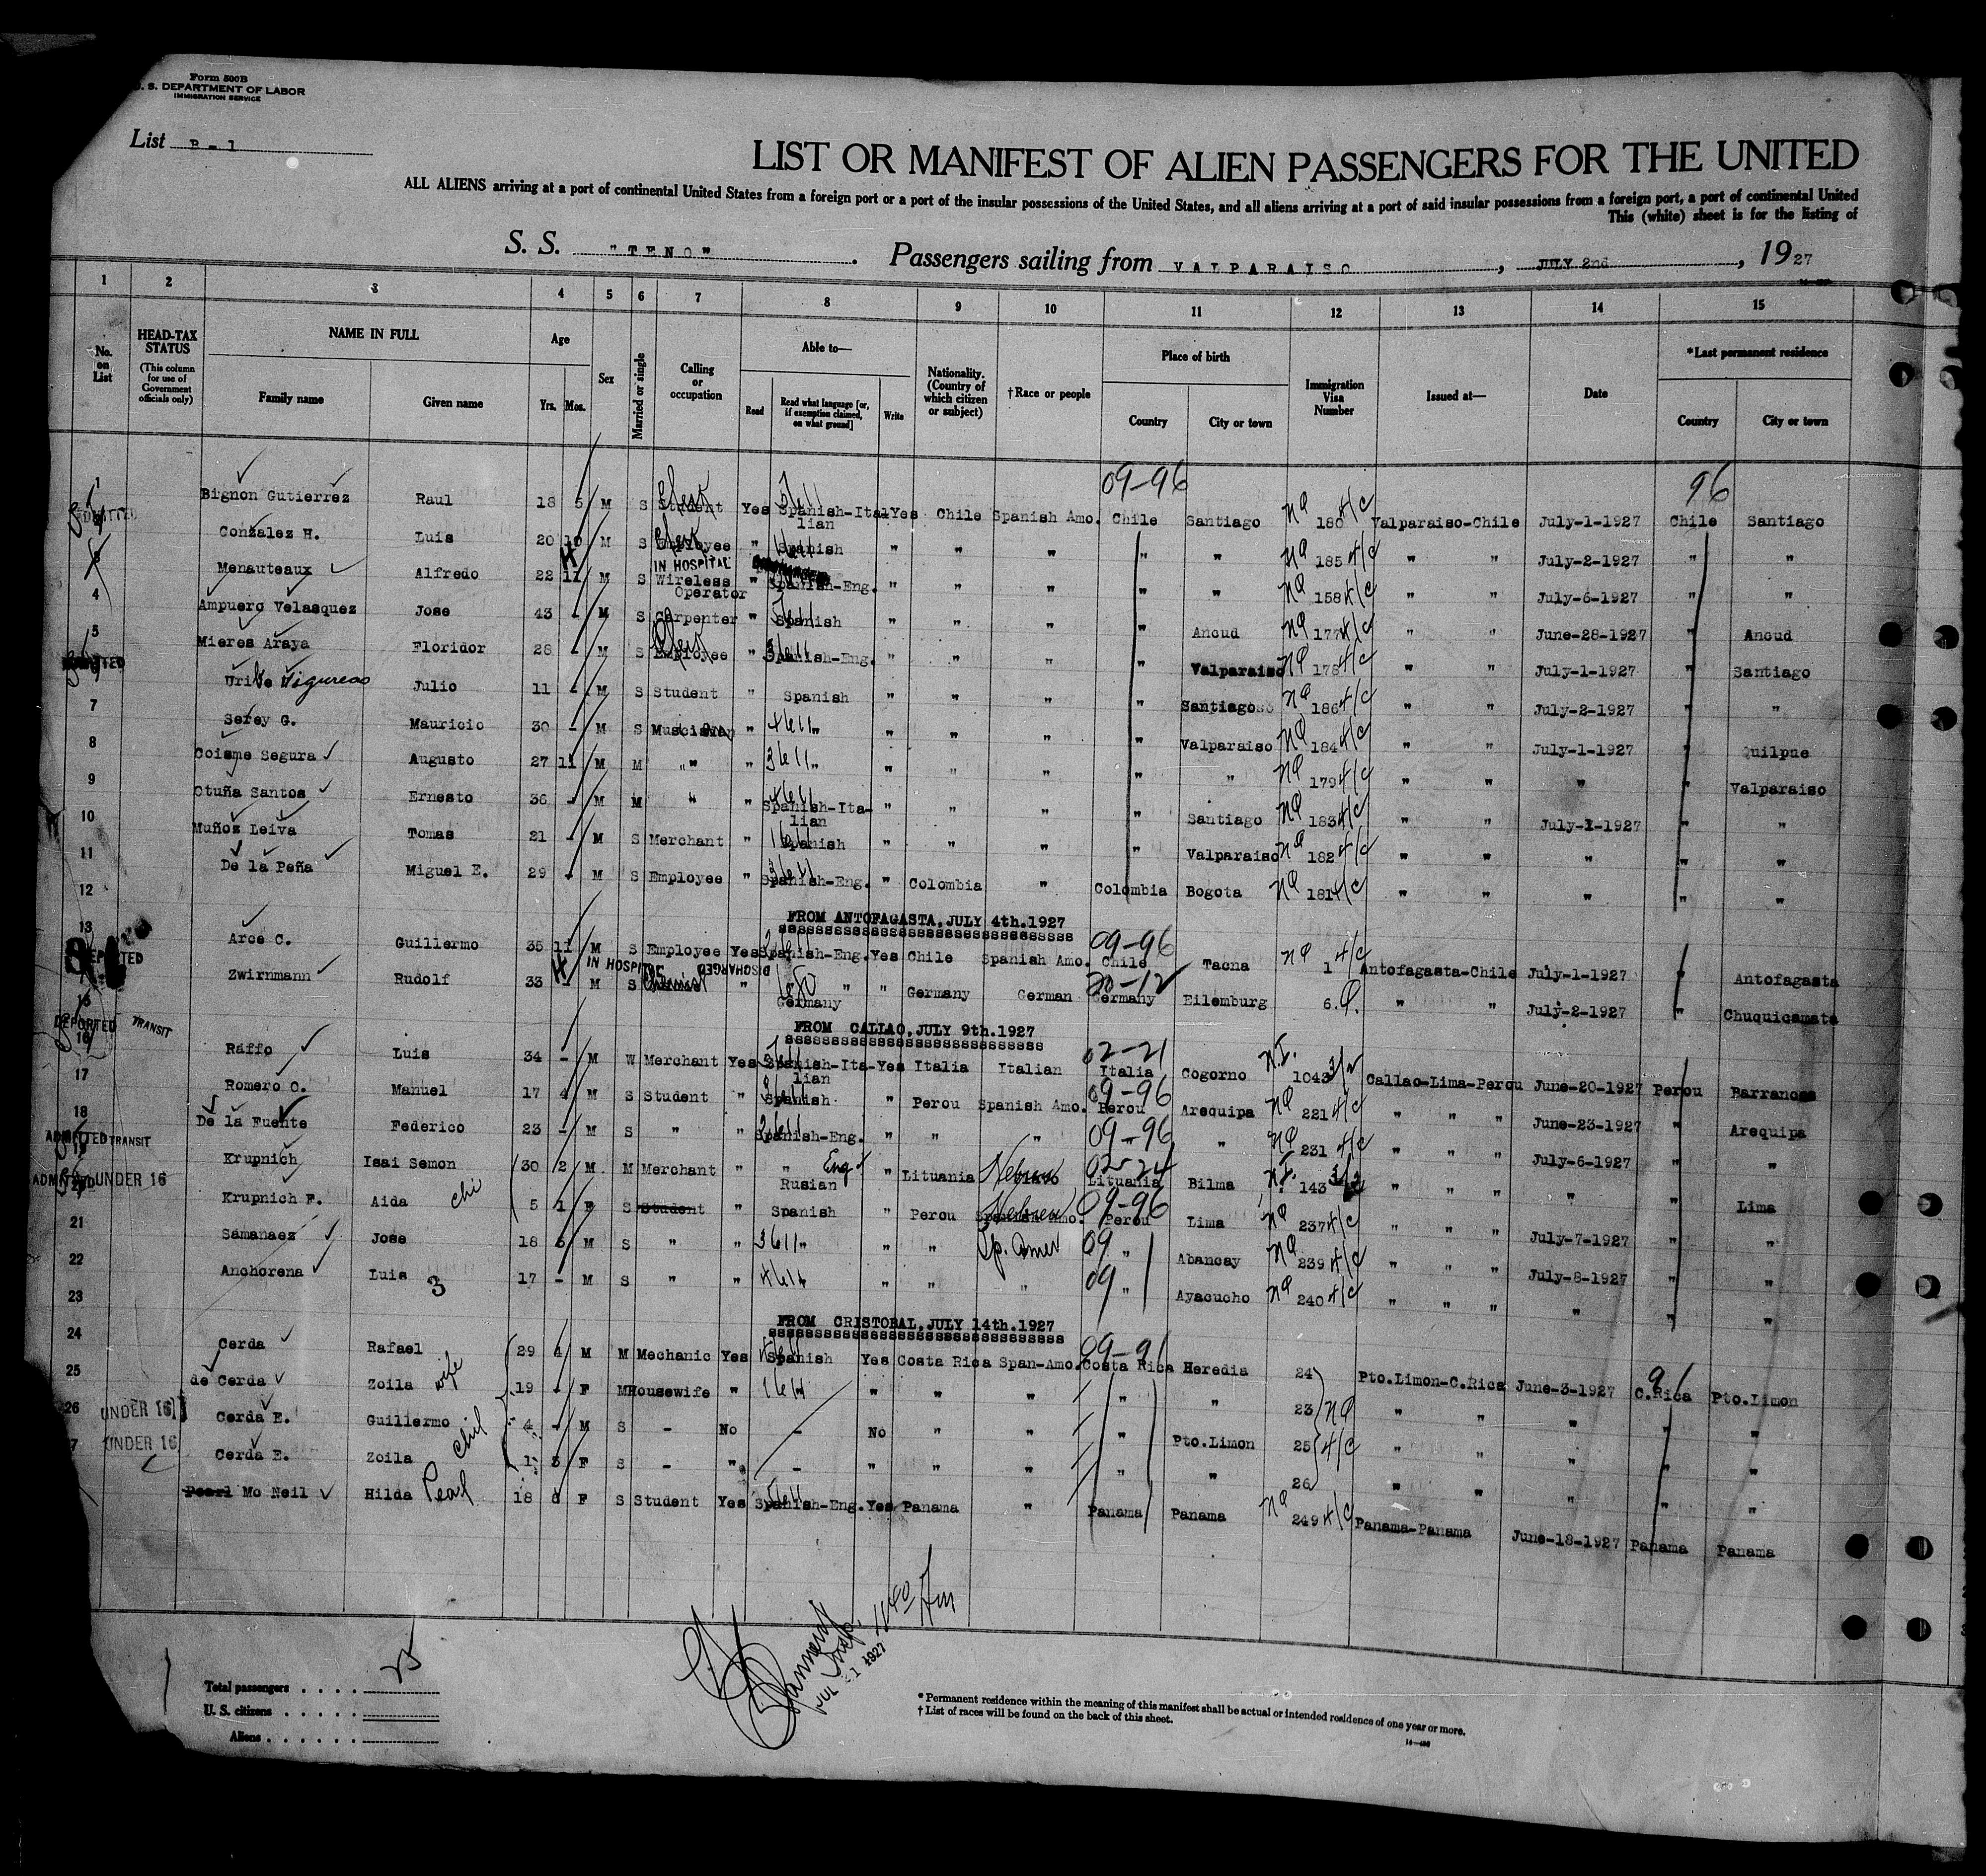 Form 500B
U. S. DEPARTMENT OF LABOR
IMMIGRATION SERVICE
List B-1
LIST OR MANIFEST OF ALIEN PASSENGERS FOR THE UNITED
ALL ALIENS arriving at a port of continental United States from a foreign port or a port of the insular possessions of the United States, and all aliens arriving at a port of said insular possessions from a foreign port, a port of continental United
This (white) sheet is for the listing of
S. S. "TENO". Passengers sailing from VALPARAISO, JULY 2nd, 1927
1 2 3 4 5 6 7 8 9 10 11 12 13 14 15
No. on List HEAD-TAX STATUS (This column for use of Government officials only) NAME IN FULL Family name Given name Age Yrs. Mos. Sex Married or single Calling or occupation Able to— Read Read what language [or, if exemption claimed, on what ground] Write Nationality. (Country of which citizen or subject) †Race or people Place of birth Country City or town Immigration Visa Number Issued at— Date *Last permanent residence Country City or town
09-96 96
1 Bignon Gutierrez Raul 18 5 M S Student Clerk Yes Spanish-Italian Yes Chile Spanish Amo. Chile Santiago NQ 180 4/c Valparaiso-Chile July-1-1927 Chile Santiago
ADMITTED
Gonzalez H. Luis 20 10 M S Employee Clerk " Spanish " " " " " NQ 185 4/c " " July-2-1927 " "
3 Menauteaux Alfredo 22 11 M S IN HOSPITAL Wireless Operator " Spanish-Eng. " " " " " NQ 158 4/c " " July-6-1927 " "
4 Ampuero Velasquez Jose 43 - M S Carpenter " Spanish " " " " Ancud NQ 177 4/c " " June-28-1927 " Ancud
5 Mieres Araya Floridor 28 - M S Employee Clerk " Spanish-Eng. " " " " Valparaiso NQ 178 4/c " " July-1-1927 " Santiago
ADMITTED
Uribe Figueroa Julio 11 - M S Student " Spanish " " " " Santiago NQ 186 4/c " " July-2-1927 " "
7 Serey G. Mauricio 30 - M S Musician " " " " " " Valparaiso NQ 184 4/c " " July-1-1927 " Quilpue
8 Coisme Segura Augusto 27 11 M M " " " " " " " " NQ 179 4/c " " " " Valparaiso
9 Otuña Santos Ernesto 36 - M M " " Spanish-Italian " " " " Santiago NQ 183 4/c " " July-1-1927 " "
10 Muñoz Leiva Tomas 21 - M S Merchant " Spanish " " " " Valparaiso NQ 182 4/c " " " " "
11 De la Peña Miguel E. 29 - M S Employee " Spanish-Eng. " Colombia " Colombia Bogota NQ 181 4/c " " " " "
12
FROM ANTOFAGASTA, JULY 4th.1927
09-96
13 Arce C. Guillermo 35 11 M S Employee Yes Spanish-Eng. Yes Chile Spanish Amo. Chile Tacna NQ 1 4/c Antofagasta-Chile July-1-1927 " Antofagasta
IN HOSPITAL DISCHARGED
Zwirnmann Rudolf 33 - M S Chemist " " " Germany " Germany German Germany Eilemburg 6. July-2-1927 " Chuquicamata
15
DEPORTED TRANSIT
FROM CALLAO, JULY 9th.1927
16 Raffo Luis 34 - M W Merchant Yes Spanish-Italian Yes Italia Italian Italia Cogorno 1043 Callao-Lima-Perou June-20-1927 Perou Barranca
17 Romero C. Manuel 17 4 M S Student " Spanish " Perou Spanish Amo. 09-96 Perou Arequipa NQ 221 4/c " " " June-23-1927 " Arequipa
18 De la Fuente Federico 23 - M S " " Spanish-Eng. " " " 09-96 " NQ 231 4/c " " " July-6-1927 " "
ADMITTED TRANSIT
Krupnich Isai Semon 30 2 M M Merchant " " Eng Rusian " Lituania Hebrew 02-24 Lituania Bilma 143 " " " " " Lima
ADMITTED UNDER 16
Krupnich F. Aida chi 5 1 F S Student " Spanish " Perou Hebrew 09-96 Perou Lima NQ 237 4/c " " " July-7-1927 " "
21 Samanaez Jose 18 5 M S " " " " " Sp. Amer 09 " Abancay NQ 239 4/c " " " July-8-1927 " "
22 Anchorena Luis 3 17 - M S " " " " " 09 " Ayacucho NQ 240 4/c " " " " " "
23
FROM CRISTOBAL, JULY 14th.1927
24 Cerda Rafael 29 4 M M Mechanic Yes Spanish Yes Costa Rica Span-Amo. 09-91 Costa Rica Heredia 24 Pto.Limon-C.Rica June-3-1927 91 C.Rica Pto.Limon
25 de Cerda Zoila wife 19 - F M Housewife " " " " " " 23 NQ " " " " "
26 UNDER 16 Cerda E. Guillermo 4 - M S - No - No " " " Pto.Limon 25 4/c " " " " "
UNDER 16 Cerda E. Zoila 1 3 F S - " - " " " " " 26 " " " " "
Pearl Mc Neil Hilda Pearl 18 6 F S Student Yes Spanish-Eng. Yes Panama " Panama Panama NQ 249 4/c Panama-Panama June-18-1927 Panama Panama
JUL 21 1927
Total passengers . . . .
U. S. citizens . . . . .
Aliens . . . . . .
* Permanent residence within the meaning of this manifest shall be actual or intended residence of one year or more.
† List of races will be found on the back of this sheet.